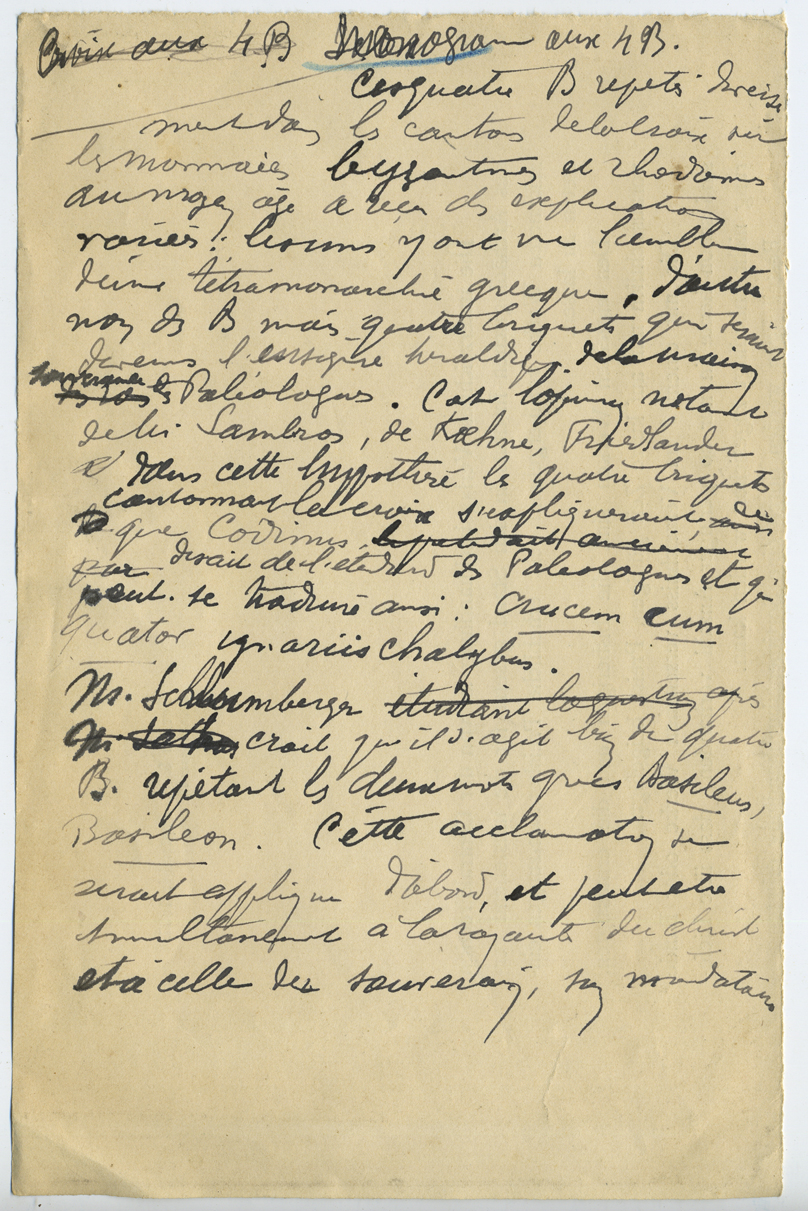 Croix aux 4 B Monogram aux 4 B.
Ces quatre B repetés
ment dans les cantons de la croix sur
les monnaies byzantines et rhodiennes
au moyen âge a reçu des explications
variées : les uns y ont vu l'emblème
d'une tétramonarchie grecque, d'autres
non des B mais quatre briquets qui seraient
devenus l'enseigne héraldique de la
souveraine des Paléologues. C'est l'opinion notamment
de Lambros, de Kœhne, Friedlander
dans cette hypothèse les quatre briquets
cantonnant la croix s'expliqueraient
que Codinus
par disait de l'étendard des Paléologues et qui
peut se traduire ainsi : Crucem cum
quator ignariis chalybus.
M. Schlumberger étudiant la question après
M. Sathas croit qu'il s'agit bien de quatre
B. répétant les deux mots grecs Basileus,
Basileon. Cette acclamation se
serait appliquée d'abord, et peut etre
simultanément à la royauté du christ
et à celle des souverains, son mandataire